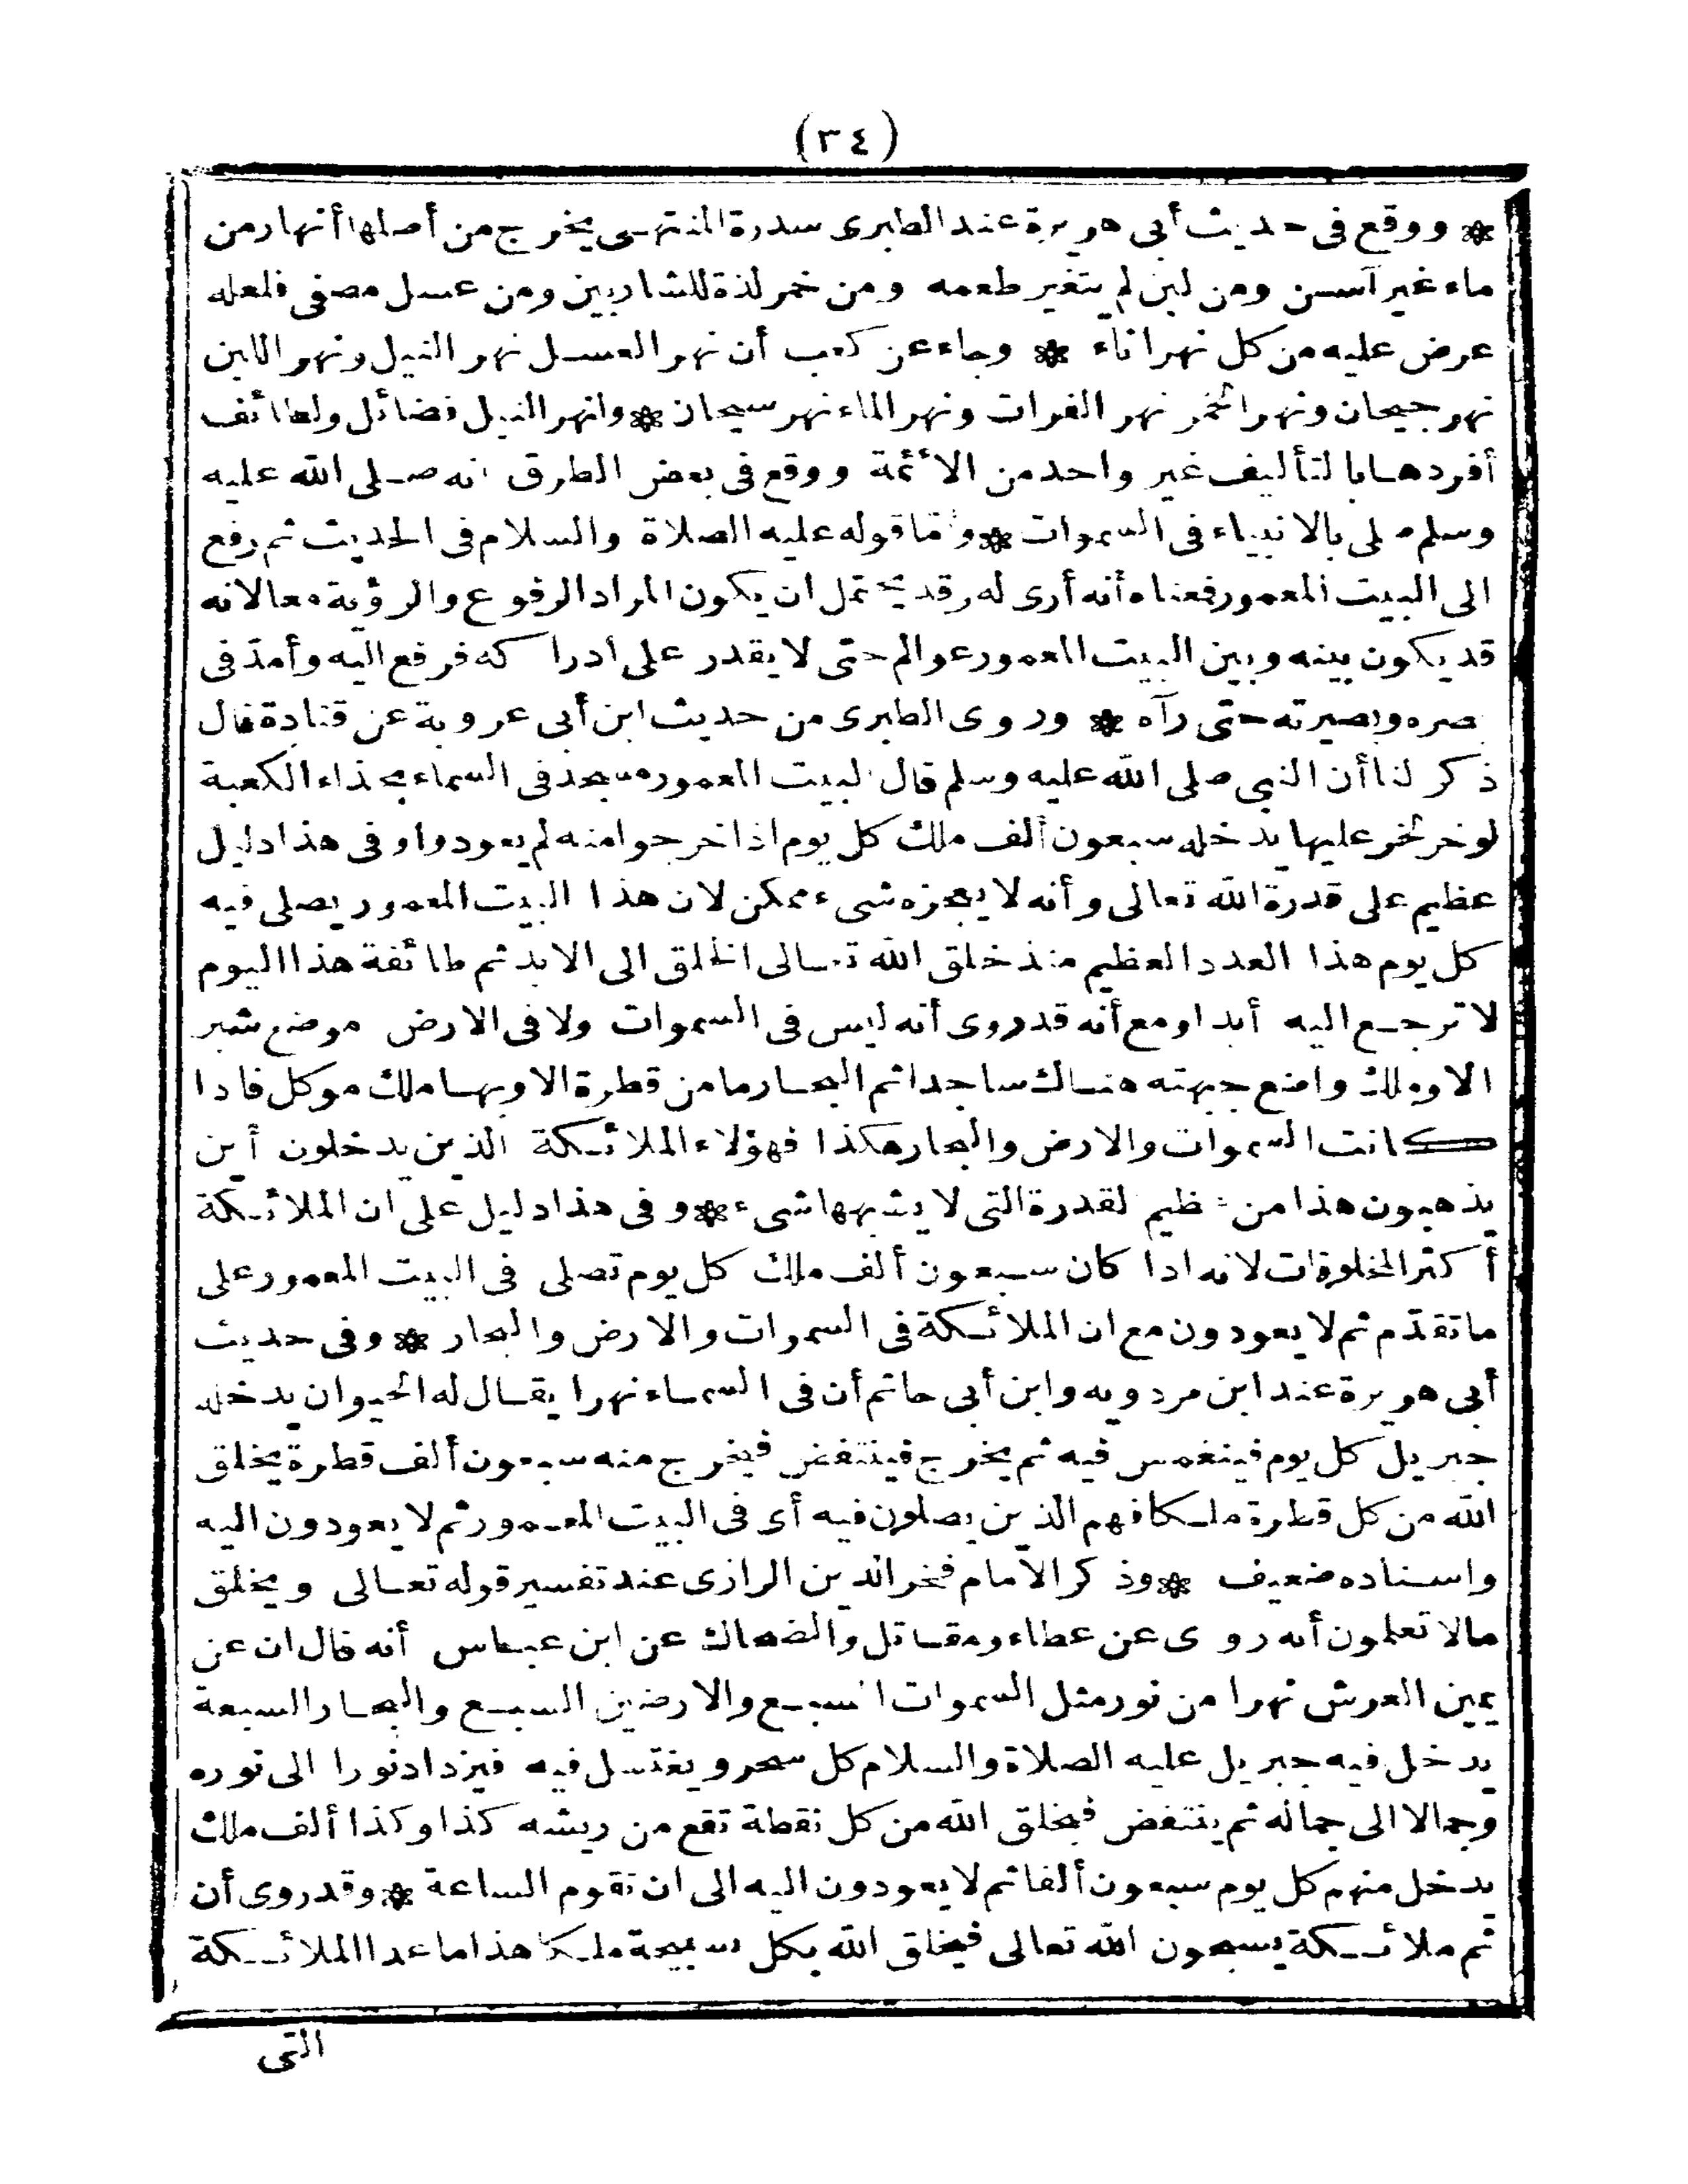 (٣٤)
* ووقع فى حديث أبى هريرة عند الطبرى سدرة المنتهى يخرج من أصلها أنهار من
ماء غير آسن ومن لبن لم يتغير طعمه ومن خمر لذة للشاربين ومن عسل مصفى فلعله
عرض عليه من كل نهر اناء * وجاء عن كعب أن نهر العسل نهر النيل ونهر اللبن
نهر جيحان ونهر الخمر نهر الفرات ونهر الماء نهر سيحان * ولنهر النيل فضائل ولطائف
أفردها بالتأليف غير واحد من الأئمة ووقع فى بعض الطرق انه صلى الله عليه
وسلم صلى بالانبياء فى السموات * وأما قوله عليه الصلاة والسلام فى الحديث ثم رفع
الى البيت المعمور فمعناه أنه أرى له وقد يحتمل ان يكون المراد الرفوع والرؤية معا لانه
قد يكون بينه وبين البيت المعمور عوالم حتى لا يقدر على ادراكه فرفع اليه وأمدّ فى
بصره وبصيرته حتى رآه * وروى الطبرى من حديث ابن أبى عروبة عن قتادة قال
ذكر لنا أن النبى صلى الله عليه وسلم قال البيت المعمور مسجد فى السماء بحذاء الكعبة
لو خر لخر عليها يدخله سبعون ألف ملك كل يوم اذا خرجوا منه لم يعودوا وفى هذا دليل
عظيم على قدرة الله تعالى وأنه لا يعجزه شىء ممكن لان هذا البيت المعمور يصلى فيه
كل يوم هذا العدد العظيم منذ خلق الله تعالى الخلق الى الابد ثم طائفة هذا اليوم
لا ترجع اليه أبدا ومع أنه قد روى أنه ليس فى السموات ولا فى الارض موضع شبر
الا وملك واضع جبهته هناك ساجدا ثم البحار ما من قطرة الا وبها ملك موكل فاذا
كانت السموات والارض والبحار هكذا فهؤلاء الملائكة الذين يدخلون أين
يذهبون هذا من عظيم القدرة التى لا يشبهها شىء * وفى هذا دليل على ان الملائكة
أكثر المخلوقات لانه اذا كان سبعون ألف ملك كل يوم تصلى فى البيت المعمور على
ما تقدّم ثم لا يعودون مع ان الملائكة فى السموات والارض والبحار * وفى حديث
أبى هريرة عند ابن مردويه وابن أبى حاتم أن فى السماء نهرا يقال له الحيوان يدخله
جبريل كل يوم فينغمس فيه ثم يخرج فينتفض فيخرج منه سبعون ألف قطرة يخلق
الله من كل قطرة ملكا فهم الذين يصلون فيه أى فى البيت المعمور ثم لا يعودون اليه
واسناده ضعيف * وذكر الامام فخر الدين الرازى عند تفسير قوله تعالى ويخلق
مالا تعلمون أنه روى عن عطاء ومقاتل والضحاك عن ابن عباس أنه قال ان عن
يمين العرش نهرا من نور مثل السموات السبع والارضين السبع والبحار السبعة
يدخل فيه جبريل عليه الصلاة والسلام كل سحر ويغتسل فيه فيزداد نورا الى نوره
وجمالا الى جماله ثم ينتفض فيخلق الله من كل نقطة تقع من ريشه كذا وكذا ألف ملك
يدخل منهم كل يوم سبعون ألفا ثم لا يعودون اليه الى ان تقوم الساعة * وقد روى أن
ثم ملائكة يسبحون الله تعالى فيخلق الله بكل تسبيحة ملكا هذا ما عدا الملائكة
التى